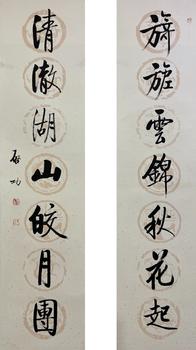 旖旎雲錦秋花起
清澈湖山皎月團
启功